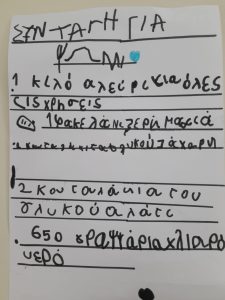 ΣΥΝΤΑΓΗ ΓΙΑ
ψωμί
1 κιλό αλεύρι για όλες
τις χρήσεις
1 φακελάκι ξερή μαγιά
1 κουταλάκι του γλυκού ζάχαρη
2 κουταλάκια του
γλυκού αλάτι
650 γραμμάρια χλιαρό
νερό